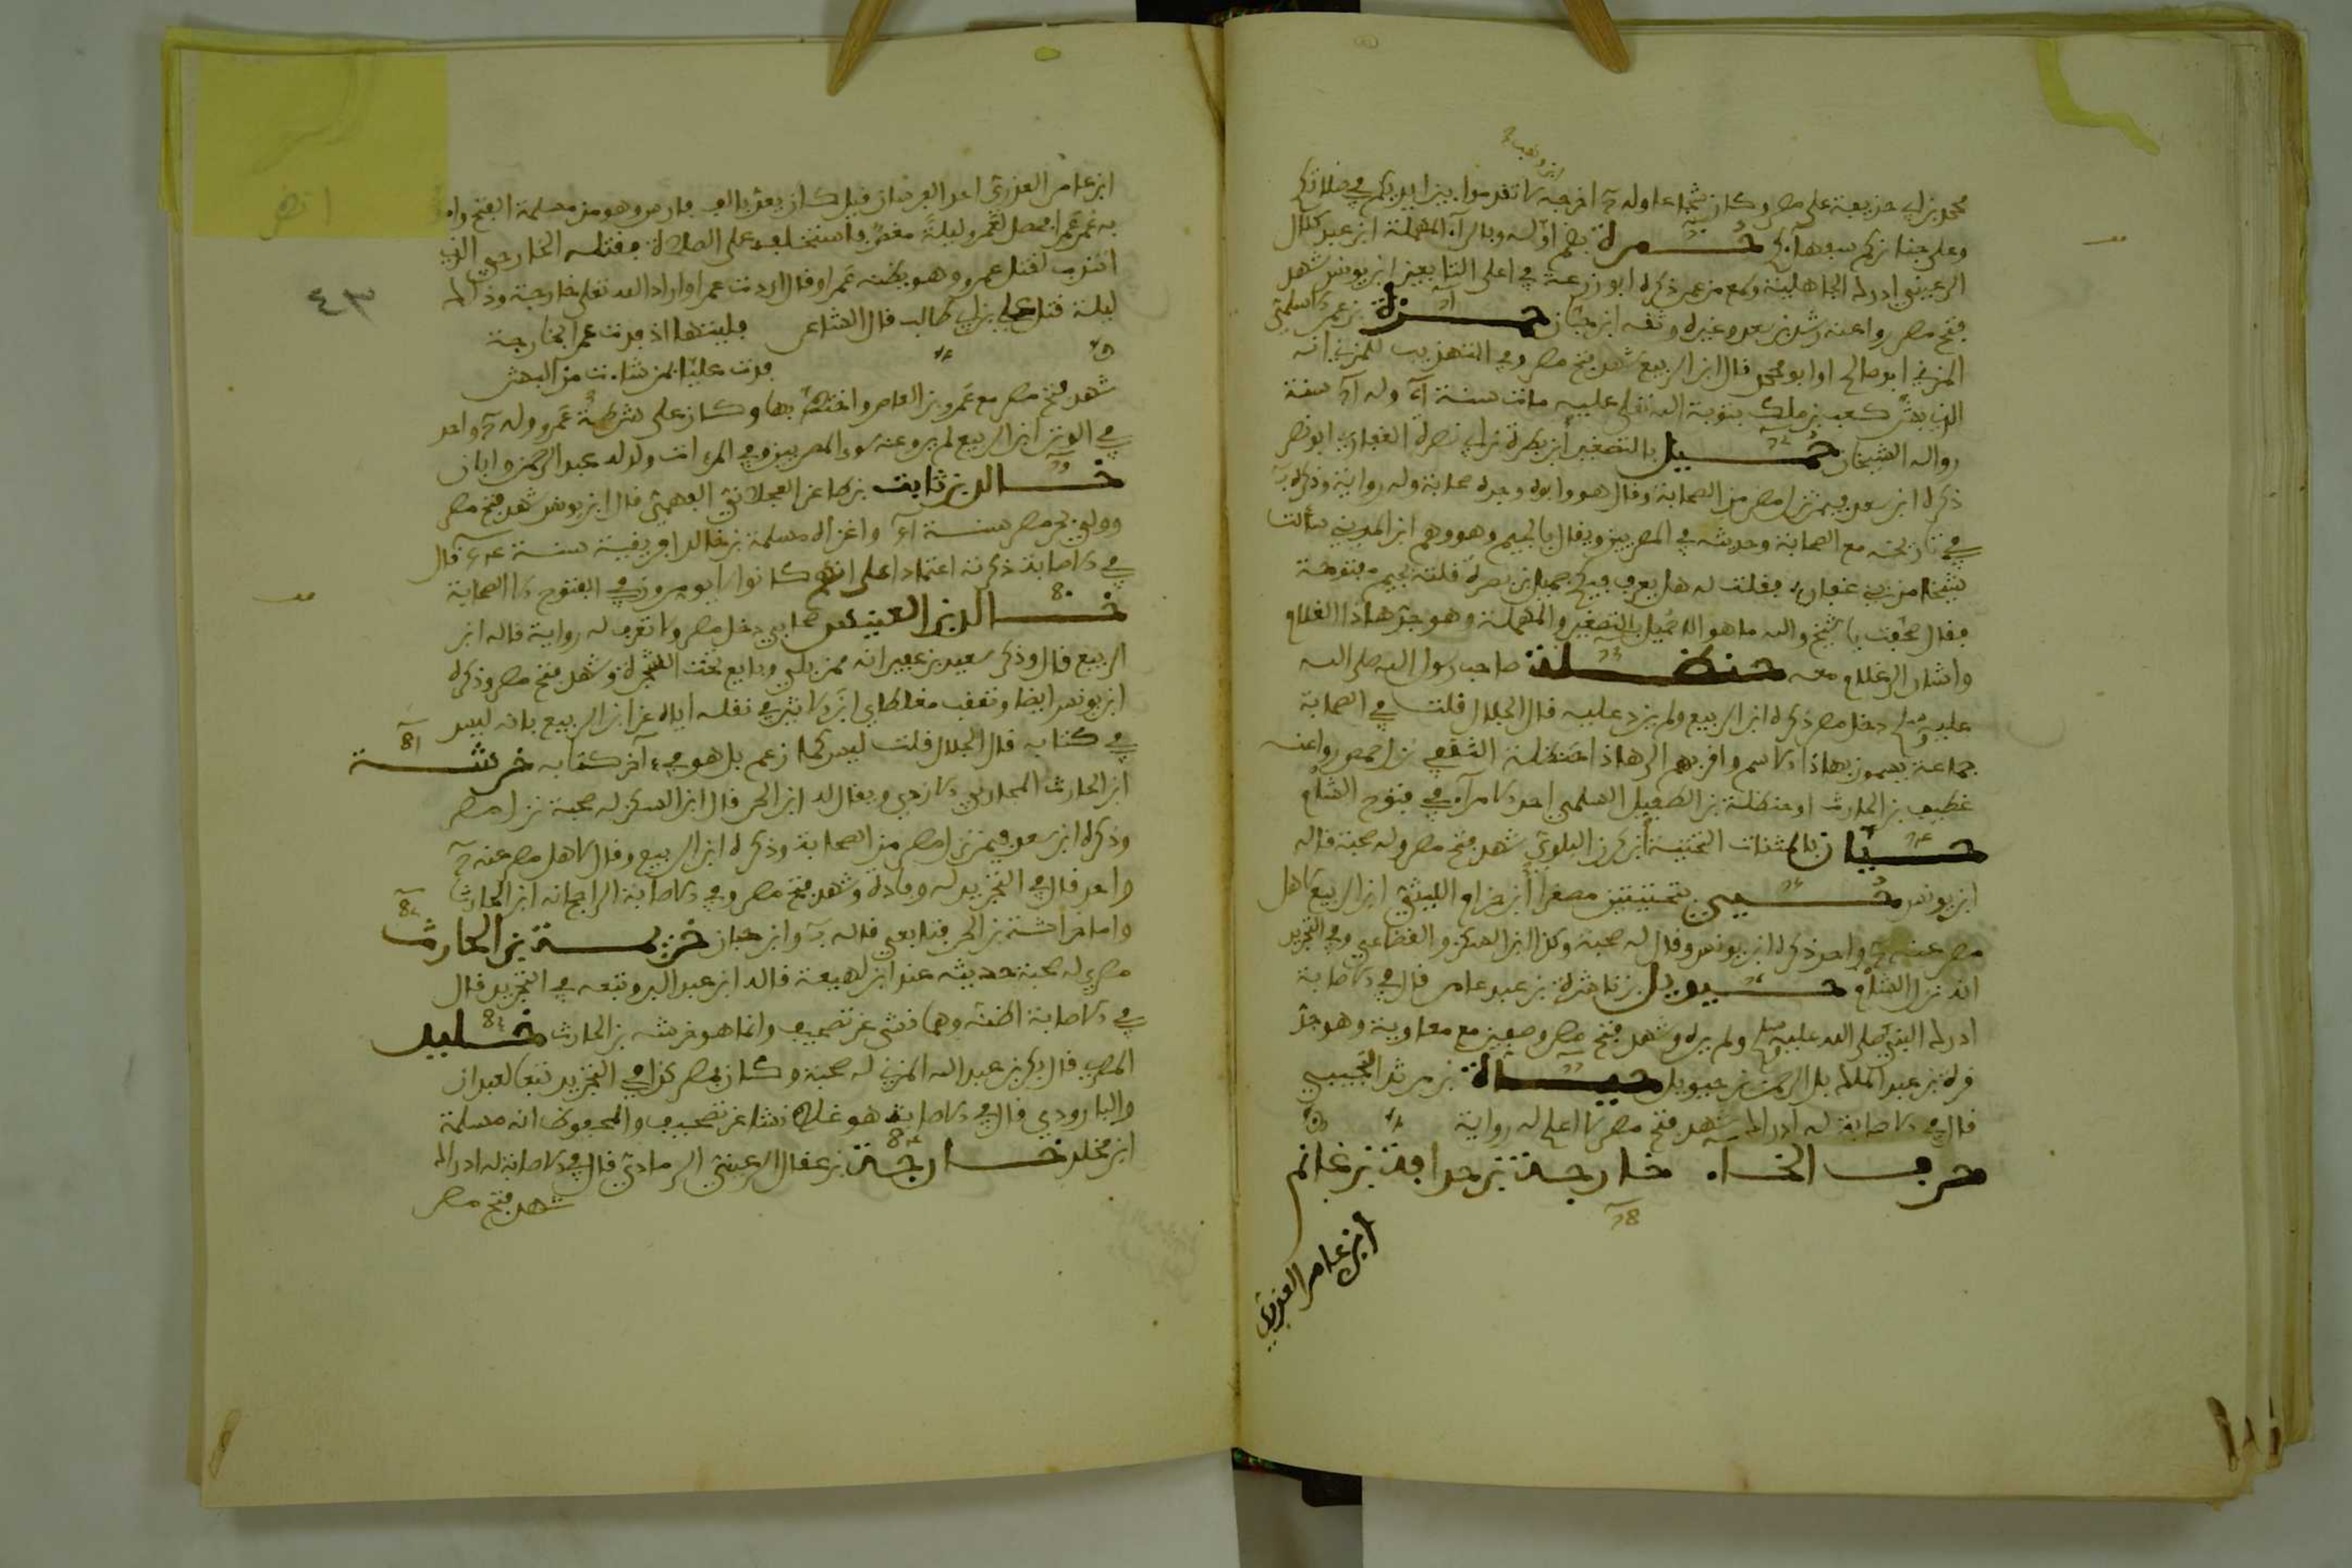 محمد بن أبي حذيفة على مصر وكان شجاعا وله ح اخرجه لا تقدموا بين ايديكم في صلاتكم
ابن وهب
وعلى جنائزكم سفهاءكم حُمرة بضم اوله وبالراء المهملة ابن عبد كلال
الرعيني ادرك الجاهلية وسمع من عمر ذكره ابو زرعة في اعلى التابعين ابن يونس شهد
فتح مصر روا عنه رشدين بن سعد وغيره وثقه ابن حبان حمزة بن عمر الاسلمي
المزني ابو صالح او ابو محمد قال ابن الربيع شهد فتح مصر وفي التهذيب للمزي انه
الذي بشّر كعب بن ملك بتوبة الله تعلى عليه مات سنة وله سنة
روا له الشيخان حُميل بالتصغير ابن بصرة بن ابي نصرة الغفاري ابو نصر
ذكره ابن سعد فيمن نزل مصر من الصحابة وقال هو وابوه وجده صحابة وله رواية وذكره
في تاريخه مع الصحابة وحديثه في المصريين ويقال بالجيم وهو وهم ابن المديني سألت
شيخا من بني غفار فقلت له هل يعرف فيكم جميل بن بصرة قلته بجيم مفتوحة
فقال صحفت يا شيخ والله ما هو الا حُميل بالتصغير والمهملة وهو جدّ هاذا الغلام
واشار الى غلام معه حنظلة صاحب رسول الله صلى الله
عليه وسلم دخل مصر ذكره ابن الربيع ولم يزد عليه قال الجلال قلت في الصحابة
جماعة يسمون بهاذا الاسم واقربهم الى هاذا حنظلة الثقفي نزل حمص روا عنه
غطيف بن الحارث او حنظلة بن الطفيل السلمي احد الامراء في فتوح الشام
حيان بالمثنات التحتية ابن كرز البلوي شهد فتح مصر وله صحبة قاله
ابن يونس حُيي بتحتيتين مصغرا ابن حرام الليثي ابن الربيع لاهل
مصر عنه ح واحد ذكره ابن يونس وقال له صحبة وكذا ابن السكن والقضاعي وفي التجريد
انه نزل الشام حيويل بن ناشرة بن عبد عامر قال في الاصابة
ادرك النبي صلى الله عليه وسلم ولم يره وشهد فتح مصر وصفين مع معاوية وهو جدّ
قرة بن عبد الملك بل الرحمن بن حيويل حيأة بن مرثد التجيبي
قال في الاصابة له ادراك شهد فتح مصر لا اعلم له رواية
حرف الخاء خارجة بن حذافة بن غانم
ابن عامر العزري
ابن عامر العزري احد الفرسان قيل كان يعدّ بالف فارس وهو من مسلمة الفتح وام
به عمر عَمرا فحصل لعَمرو ليلةً مغصٌ فاستخلفه على الصلاة فقتله الخارجي الذي
انتدب لقتل عمرو وهو يظنه عَمرا وقال اردت عمرا واراد الله تعلى خارجة وذلك
ليلة قتل علي بن ابي طالب قال الشاعر فليتها اذ فدت عمرا بخارجة
فدت عليّا بمن شاءت من البشر
شهد فتح مصر مع عَمرو بن العاص واختطّ بها وكان على شرطة عَمرو وله ح واحد
في الوتر ابن الربيع لم يرو عنه سوا المصريين وفي المرءات ولد له عبد الرحمن وابان
خالد بن ثابت بن ظاعن العجلاني الفهمي قال ابن يونس شهد فتح مصر
وولي بحر مصر سنة واغزاه مسلمة بن مخلد افريقية سنة قال
في الاصابة ذكرته اعتمادا على انهم كانوا لا يومرون في الفتوح الا الصحابة
خالد بن العنبس صحابي دخل مصر ولا تعرف له رواية قاله ابن
الربيع قال وذكر سعيد بن عفير انه ممن بايع تحت الشجرة وشهد فتح مصر وذكره
ابن يونس ايضا وتعقب مغلطاي ابن الاثير في نقله اياه عن ابن الربيع بانه ليس
في كتابه قال الجلال قلت ليس كما زعم بل هو في ءاخر كتابه خرشة
ابن الحارث المحاربي الازدي ويقال له ابن الحر قال ابن السكن له صحبة نزل مصر
وذكره ابن سعد فيمن نزل مصر من الصحابة وذكره ابن الربيع وقال لاهل مصر عنه ح
واحد قال في التجريد له وفادة وشهد فتح مصر وفي الاصابة الراجح انه ابن الحارث
واما خراشة بن الحر فتابعي قاله وابن حبان خزيمة بن الحارث
مصري له صحبة حديثه عند ابن لهيعة قاله ابن عبد البر وتبعه في التجريد قال
في الاصابة اظنه وهما نشئ عن تصحيف وانما هو خرشه بن الحارث خليد
المصري قال بكر بن عبد الله المزني له صحبة وكان بمصر كذا في التجريد تبعا لعبدان
والبارودي قال في الاصابة هو غلط نشا عن تصحيف والمحفوظ انه مسلمة
ابن مخلد خارجة بن عقال الرعيني الرمادي قال في الاصابة له ادراك
شهد فتح مصر
٤٣